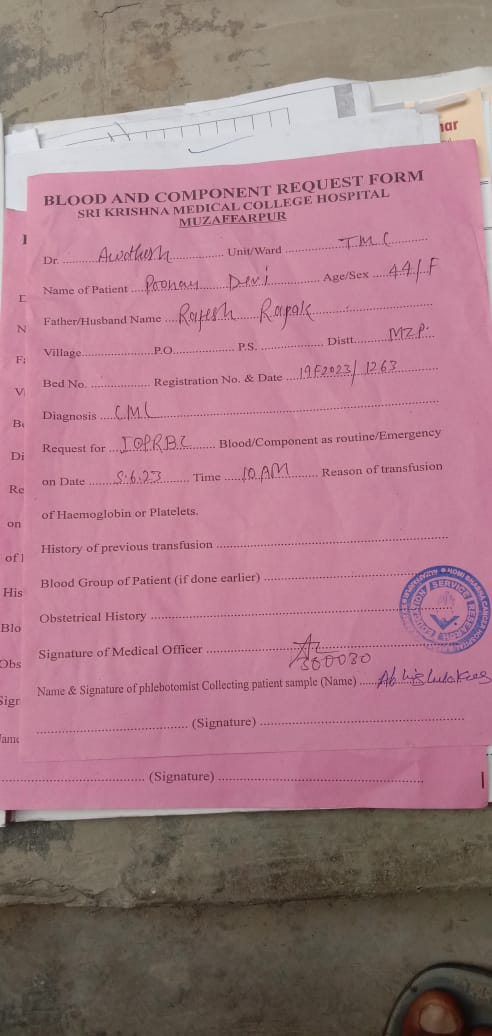 BLOOD AND COMPONENT REQUEST FORM
SRI KRISHNA MEDICAL COLLEGE HOSPITAL
MUZAFFARPUR
Dr. Awdhesh Unit/Ward TMC
Name of Patient Poonam Devi Age/Sex 44/F
Father/Husband Name Rajesh Rajak
Village P.O. P.S. Distt. MZP.
Bed No. Registration No. & Date 19F2023/1263
Diagnosis CML
Request for 1 PRBC Blood/Component as routine/Emergency
on Date 5.6.23 Time 10 AM Reason of transfusion
of Haemoglobin or Platelets.
History of previous transfusion
Blood Group of Patient (if done earlier)
Obstetrical History
Signature of Medical Officer
360030
Name & Signature of phlebotomist Collecting patient sample (Name)
(Signature)
(Signature)
nar